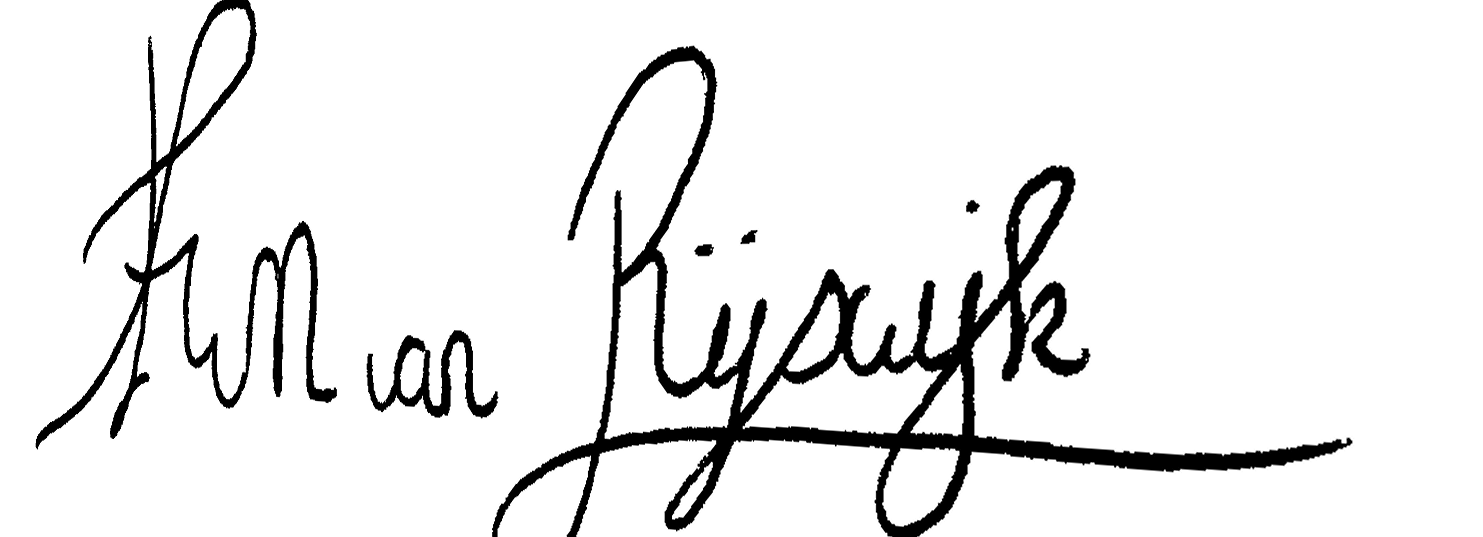 van Rijswijk